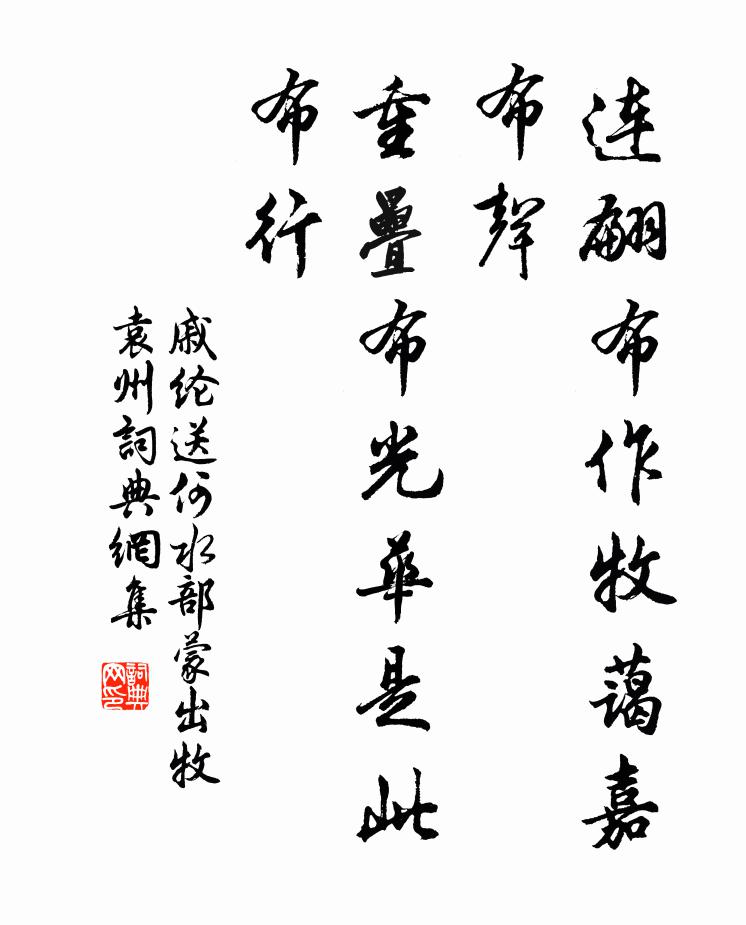 连翩布作牧蔼嘉
布聲
重疊布光華是此
布行
戚纶送何水部蒙出牧
袁州詞典網集
詞典网印